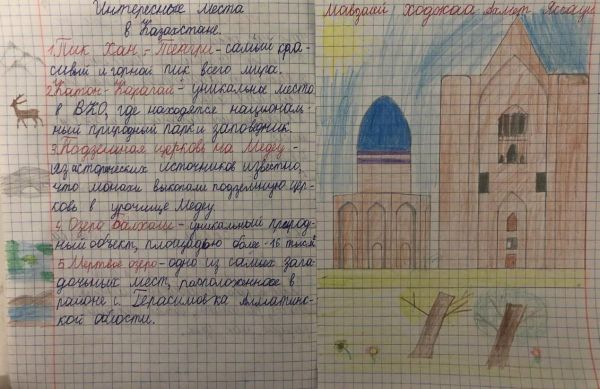 Интересные места
в Казахстане.
1. Пик Хан-Тенгри - самый кра-
сивый и горной пик всего мира.
2. Катон-Карагай - уникальное место
в ВКО, где находятся национал-
ный природный парк и заповедник.
3. Подземная церковь на Медеу -
из исторических источников известно,
что монахи выкопали подземную цер-
ковь в урочище Медеу.
4. Озеро Балхаш - уникальный природ-
ный объект, площадью более 16 тыс. км
5. Мертвое озеро - одно из самых зага-
дочных мест, расположенное в
районе с. Герасимовка Алматинс-
кой области.
Мавзолей Ходжаа Ахмет Яссауи